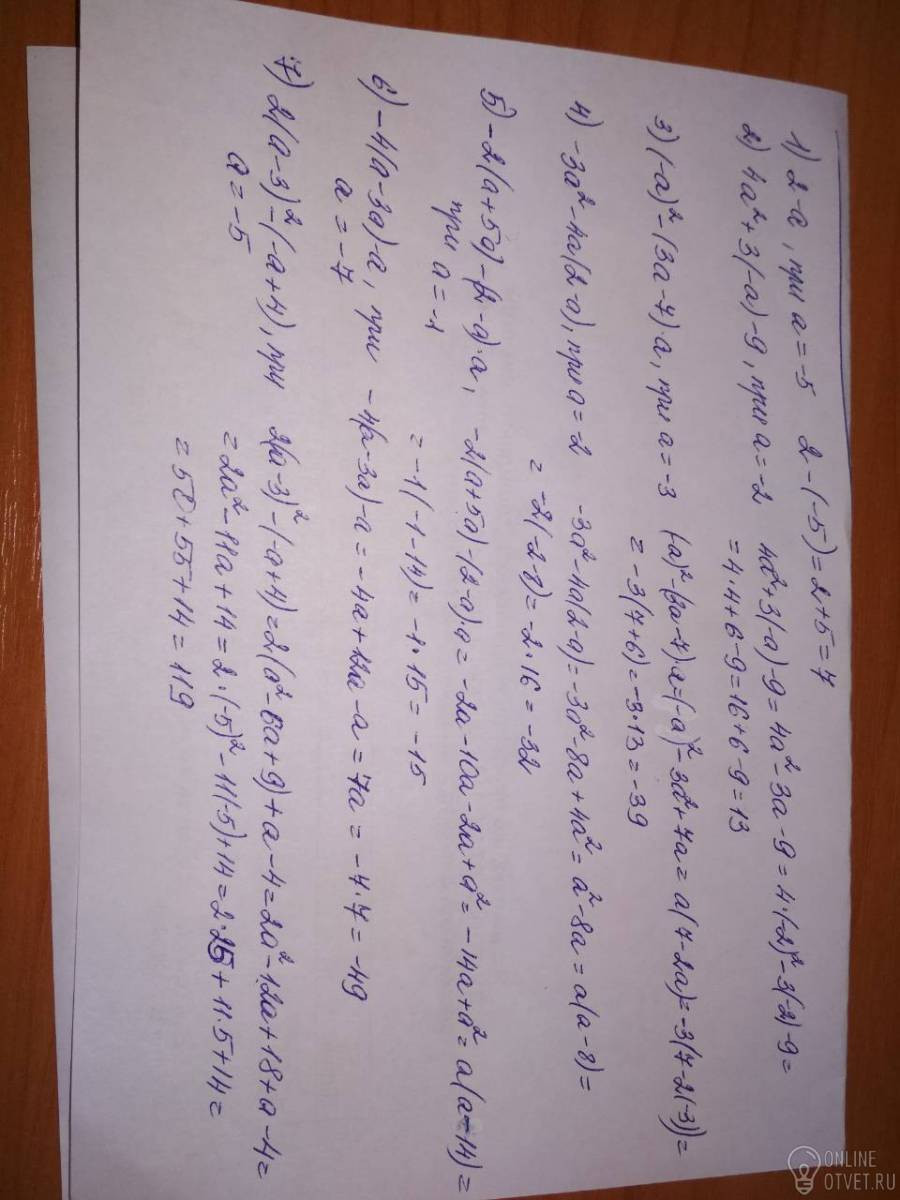 1) 2-a, при a=-5 2-(-5)=2+5=7
2) 4a²+3(-a)-9, при a=-2 4a²+3(-a)-9=4a²-3a-9=4·(-2)²-3(-2)-9=
=4·4+6-9=16+6-9=13
3) (-a)²-(3a-7)·a, при a=-3 (-a)²-(3a-7)·a=(-a)²-3a²+7a=a(7-2a)=-3(7-2(-3))=
=-3(7+6)=-3·13=-39
4) -3a²-4a(2-a), при a=-2 -3a²-4a(2-a)=-3a²-8a+4a²=a²-8a=a(a-8)=
=-2(-2-8)=-2·16=-32
5) -2(a+5a)-(2-a)·a, -2(a+5a)-(2-a)·a=-2a-10a-2a+a²=-14a+a²=a(a-14)=
при a=-1
=-1(-1-14)=-1·15=-15
6) -4(a-3a)-a, при -4(a-3a)-a=-4a+12a-a=7a=-7·7=-49
a=-7
7) 2(a-3)²-(-a+4), при 2(a-3)²-(-a+4)=2(a²-6a+9)+a-4=2a²-12a+18+a-4=
a=-5
=2a²-11a+14=2·(-5)²-11(-5)+14=2·25+11·5+14=
=50+55+14=119
ONLINE
OTVET.RU